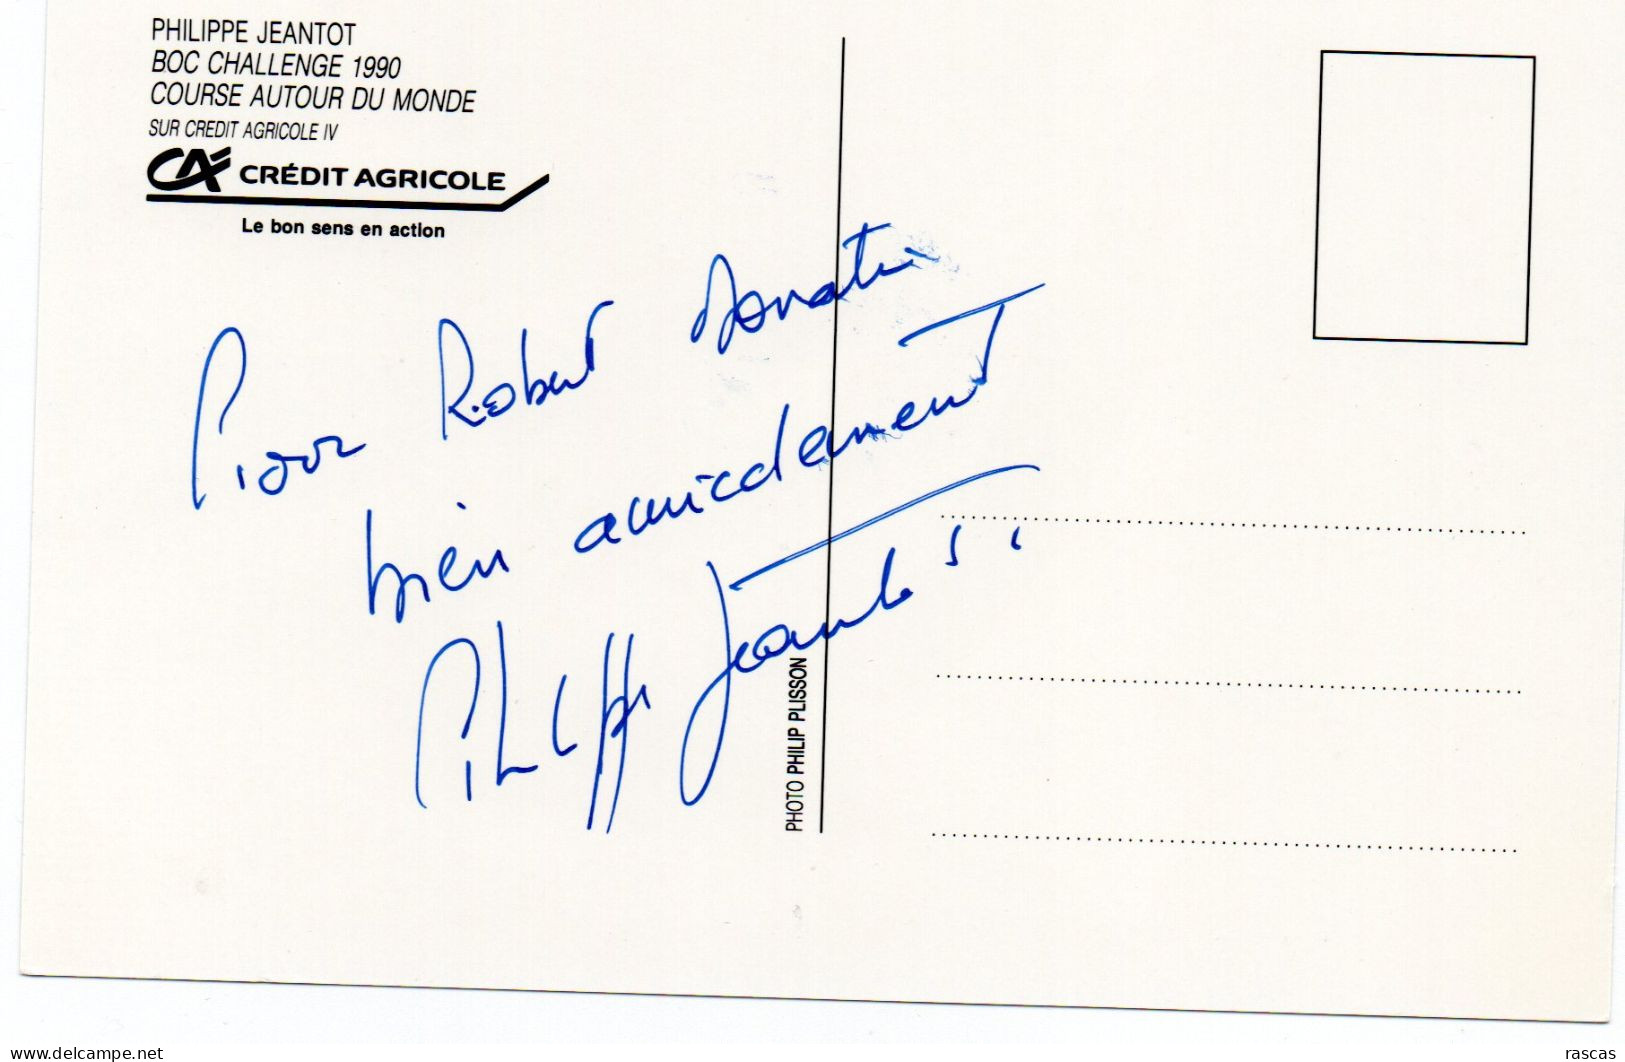 PHILIPPE JEANTOT
BOC CHALLENGE 1990
COURSE AUTOUR DU MONDE
SUR CREDIT AGRICOLE IV
CA CRÉDIT AGRICOLE
Le bon sens en action
Pour Robert
bien amicalement
Philippe Jeantot
PHOTO PHILIP PLISSON
www.delcampe.net
rascas